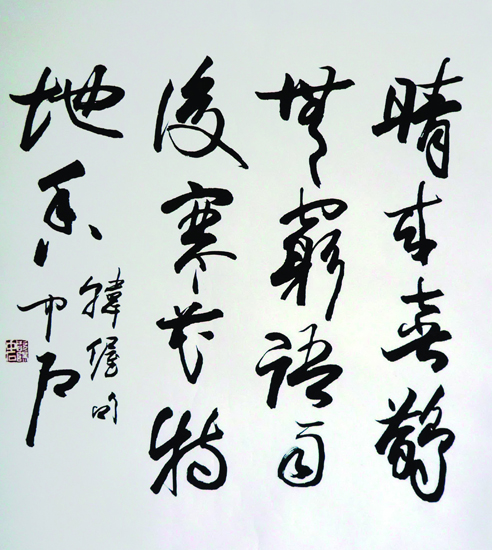 晴來喜鵲
無窮語雨
後寒花特
地香
韓偓句
中石